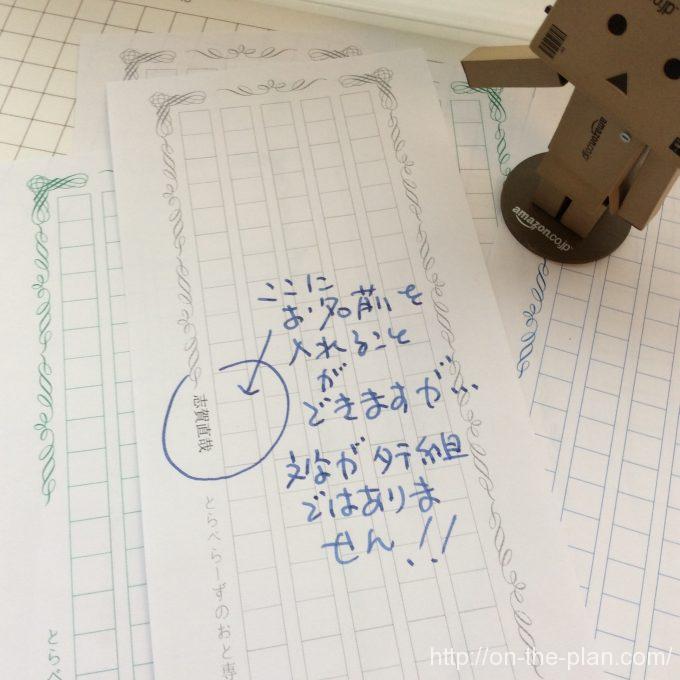 ここに
お名前を
入れること
が
できますが…
文字がタテ組
ではありま
せん!!
志賀直哉
とらべらーずのおと専
とら
amazon.co.jp
amazon
http://on-the-plan.com/